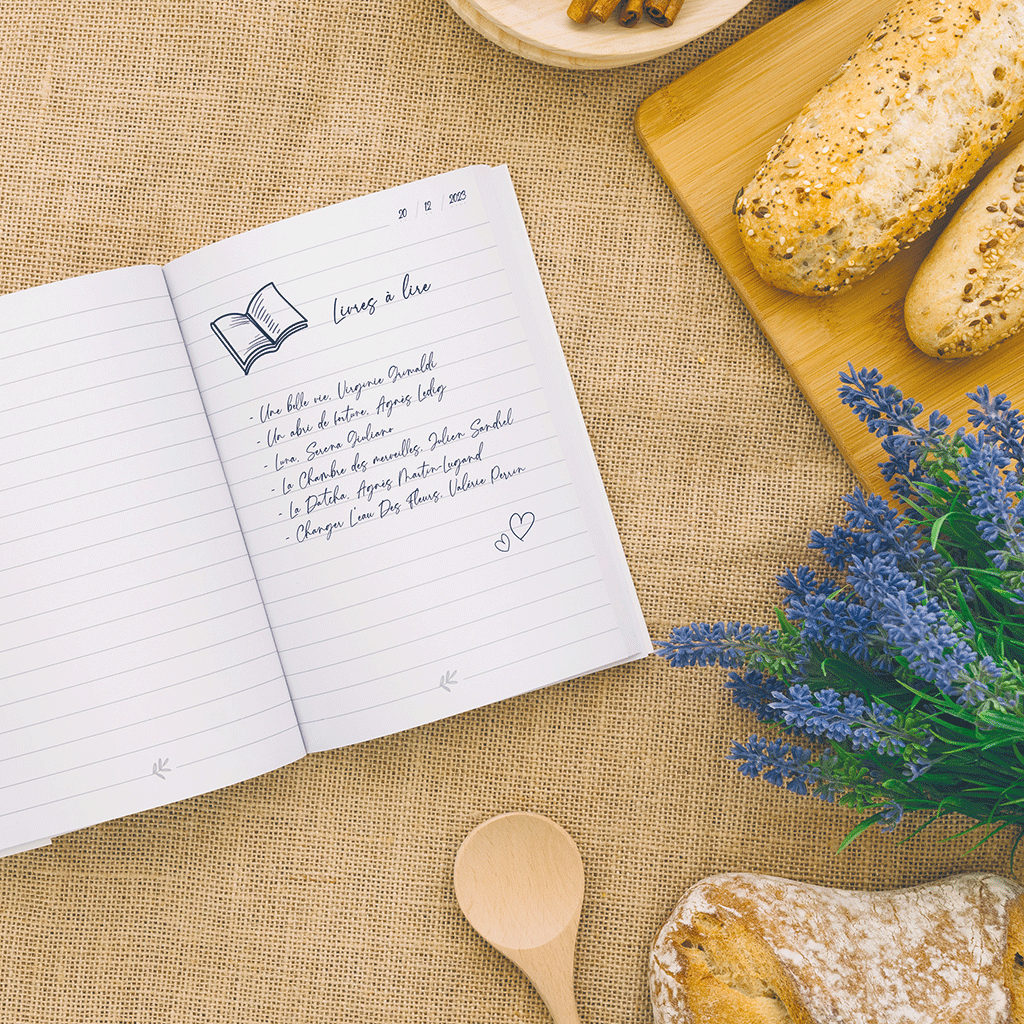 20 / 12 / 2023
Livres à lire
- Une belle vie, Virginie Grimaldi
- Un abri de fortune, Agnès Ledig
- Luna, Serena Giuliano
- La Chambre des merveilles, Julien Sandrel
- La Datcha, Agnès Martin-Lugand
- Changer L'eau Des Fleurs, Valérie Perrin